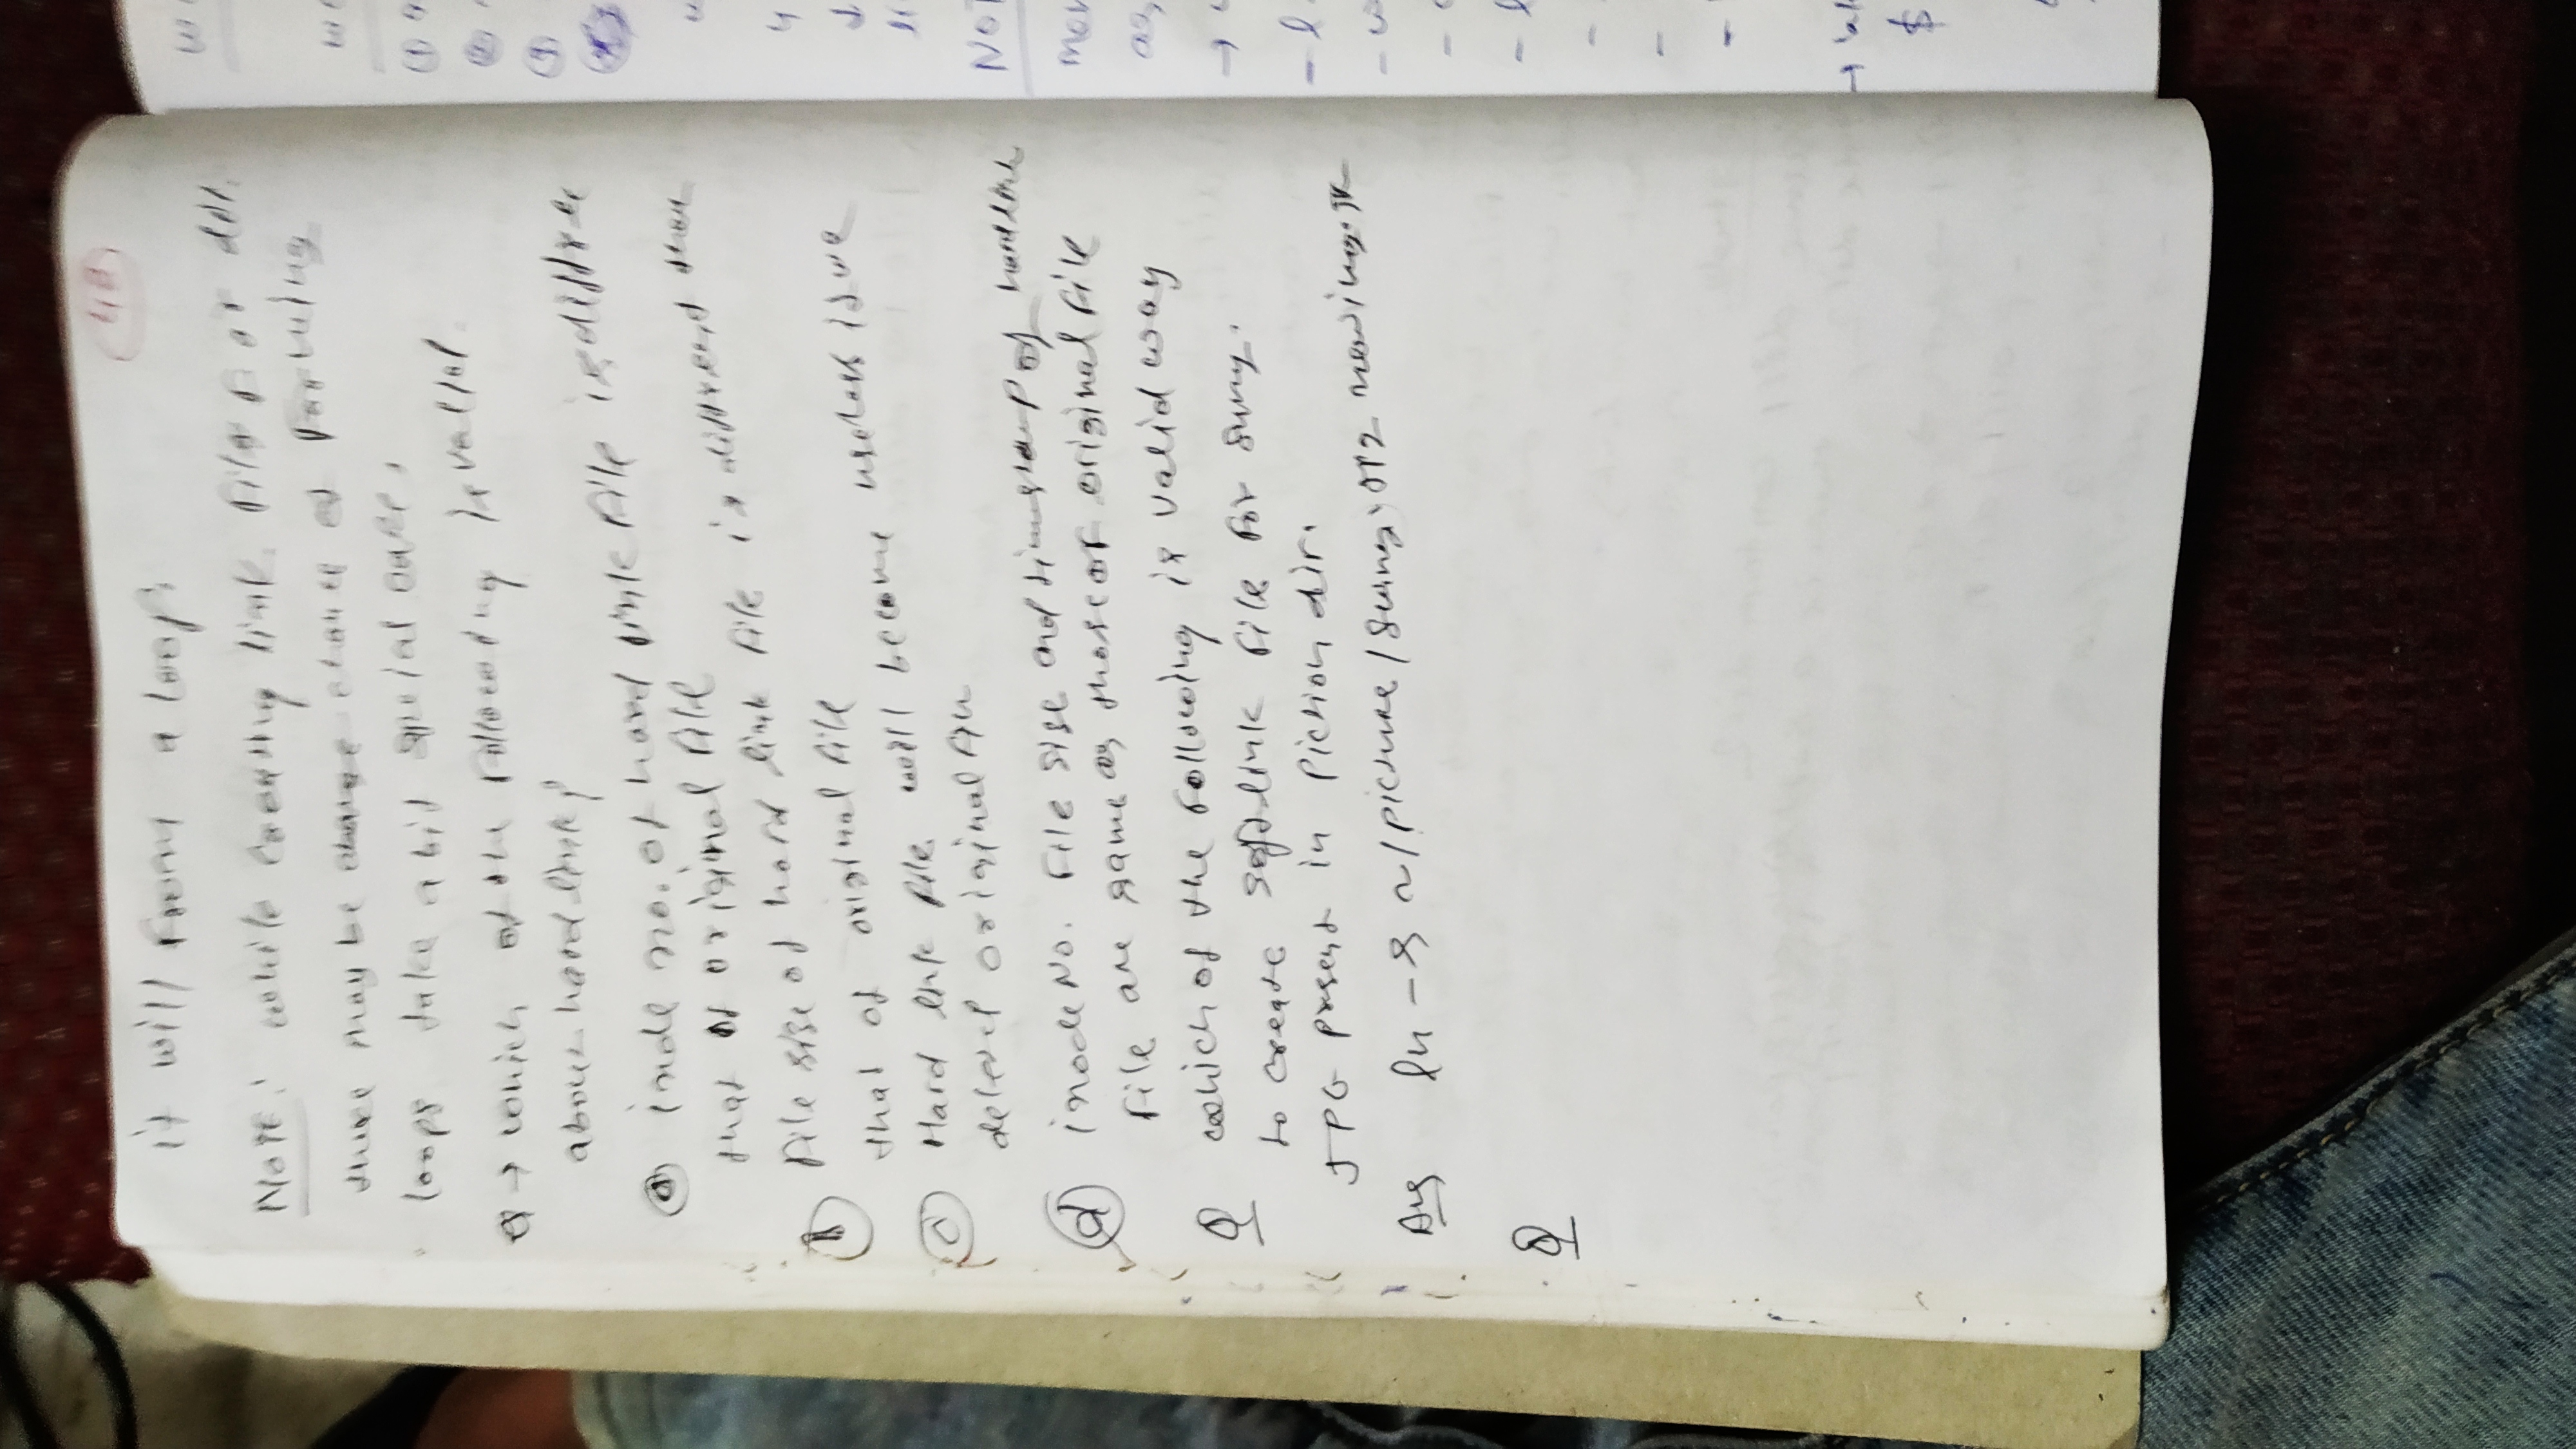 48
it will from a loop.
Note: while creating link files or dir.
there may be chance of forming
loops take a bit special care.
Q → which of the following is valid
about hard link?
(a) inode no. of hard link file is differe
that of original file
(b) File size of hard link file is different than
that of original file
(c) Hard link file will become useless if we
delete original
(d) inode No. File size and timestamp of hard link
file are same as those of original file
Q which of the following is valid way
to create soft link file for sunny.
JPG present in Piction dir.
Ans ln -s ~/picture/sunny.
Q
NOT
$